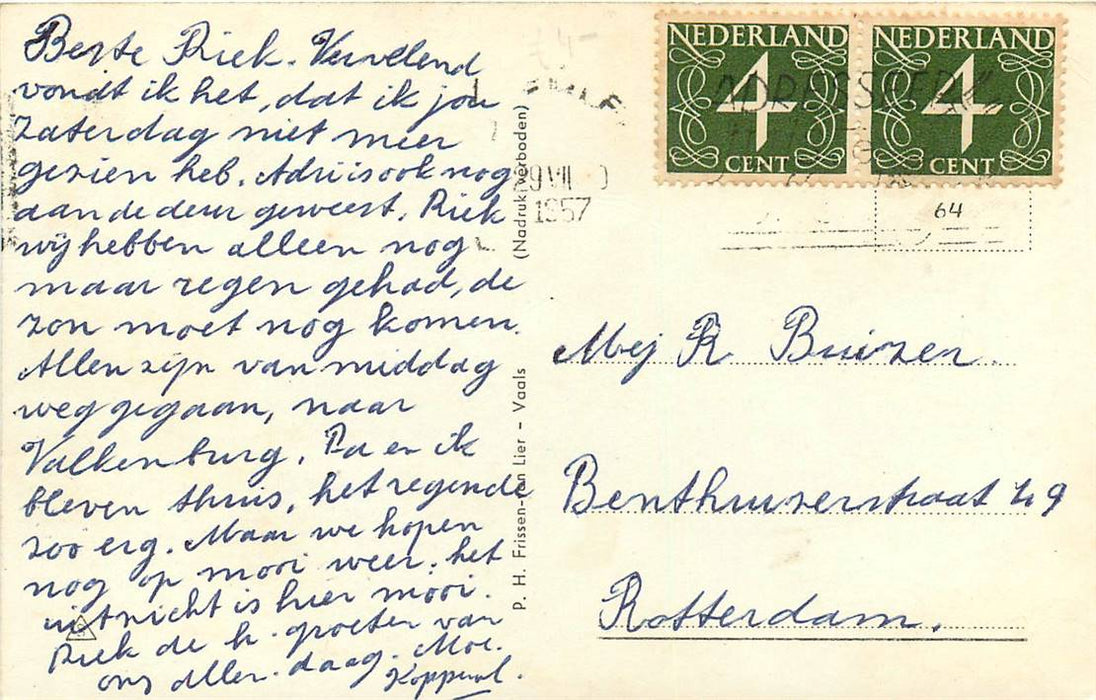 Beste Riek. Vervelend
vondt ik het, dat ik jou
Zaterdag niet meer
gezien heb. Adri is ook nog
aan de deur geweest. Riek
wij hebben alleen nog
maar regen gehad, de
zon moet nog komen.
Allen zijn van middag
weg gegaan, naar
Valkenburg. Pa en ik
bleven thuis, het regende
zoo erg. Maar we hopen
nog op mooi weer. het
uitzicht is hier mooi.
Riek de h. groeten van
ons allen. daag. Moe.
Koppenol.
P. H. Frissen-van Lier - Vaals (Nadruk verboden)
NEDERLAND
4
CENT
NEDERLAND
4
CENT
9 VII
1957
64
Mej R Buizer
Benthuizerstraat 49
Rotterdam.